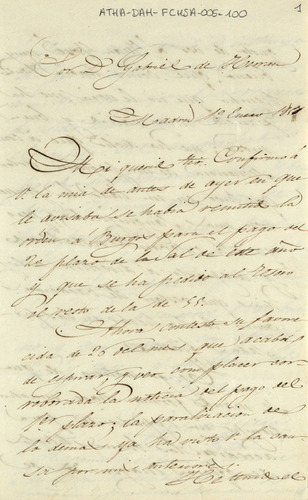 ATHA-DAH-FCHSA-005-100
1
Sor D. Gabriel de
Madrid 1º Enero
Mi querido tio: Confirmo á
V. la mia de antes de ayer en que
le avisaba se habia remitido la
orden á Burgos para el pago del
2º plazo de la Sal de este año
y que se ha pedido al Tesoro
el resto de la de 55.
Ahora contesto su favore
cida de 26 del mes que acaba
de espirar, y veo con placer cor
roborada la noticia del pago del
1er plazo; la paralizacion de
lo demas ya ha visto V. la cau
sa por mis anteriores.